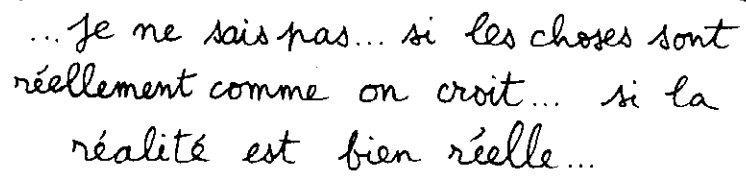 ...Je ne sais pas... si les choses sont
réellement comme on croit... si la
réalité est bien réelle...